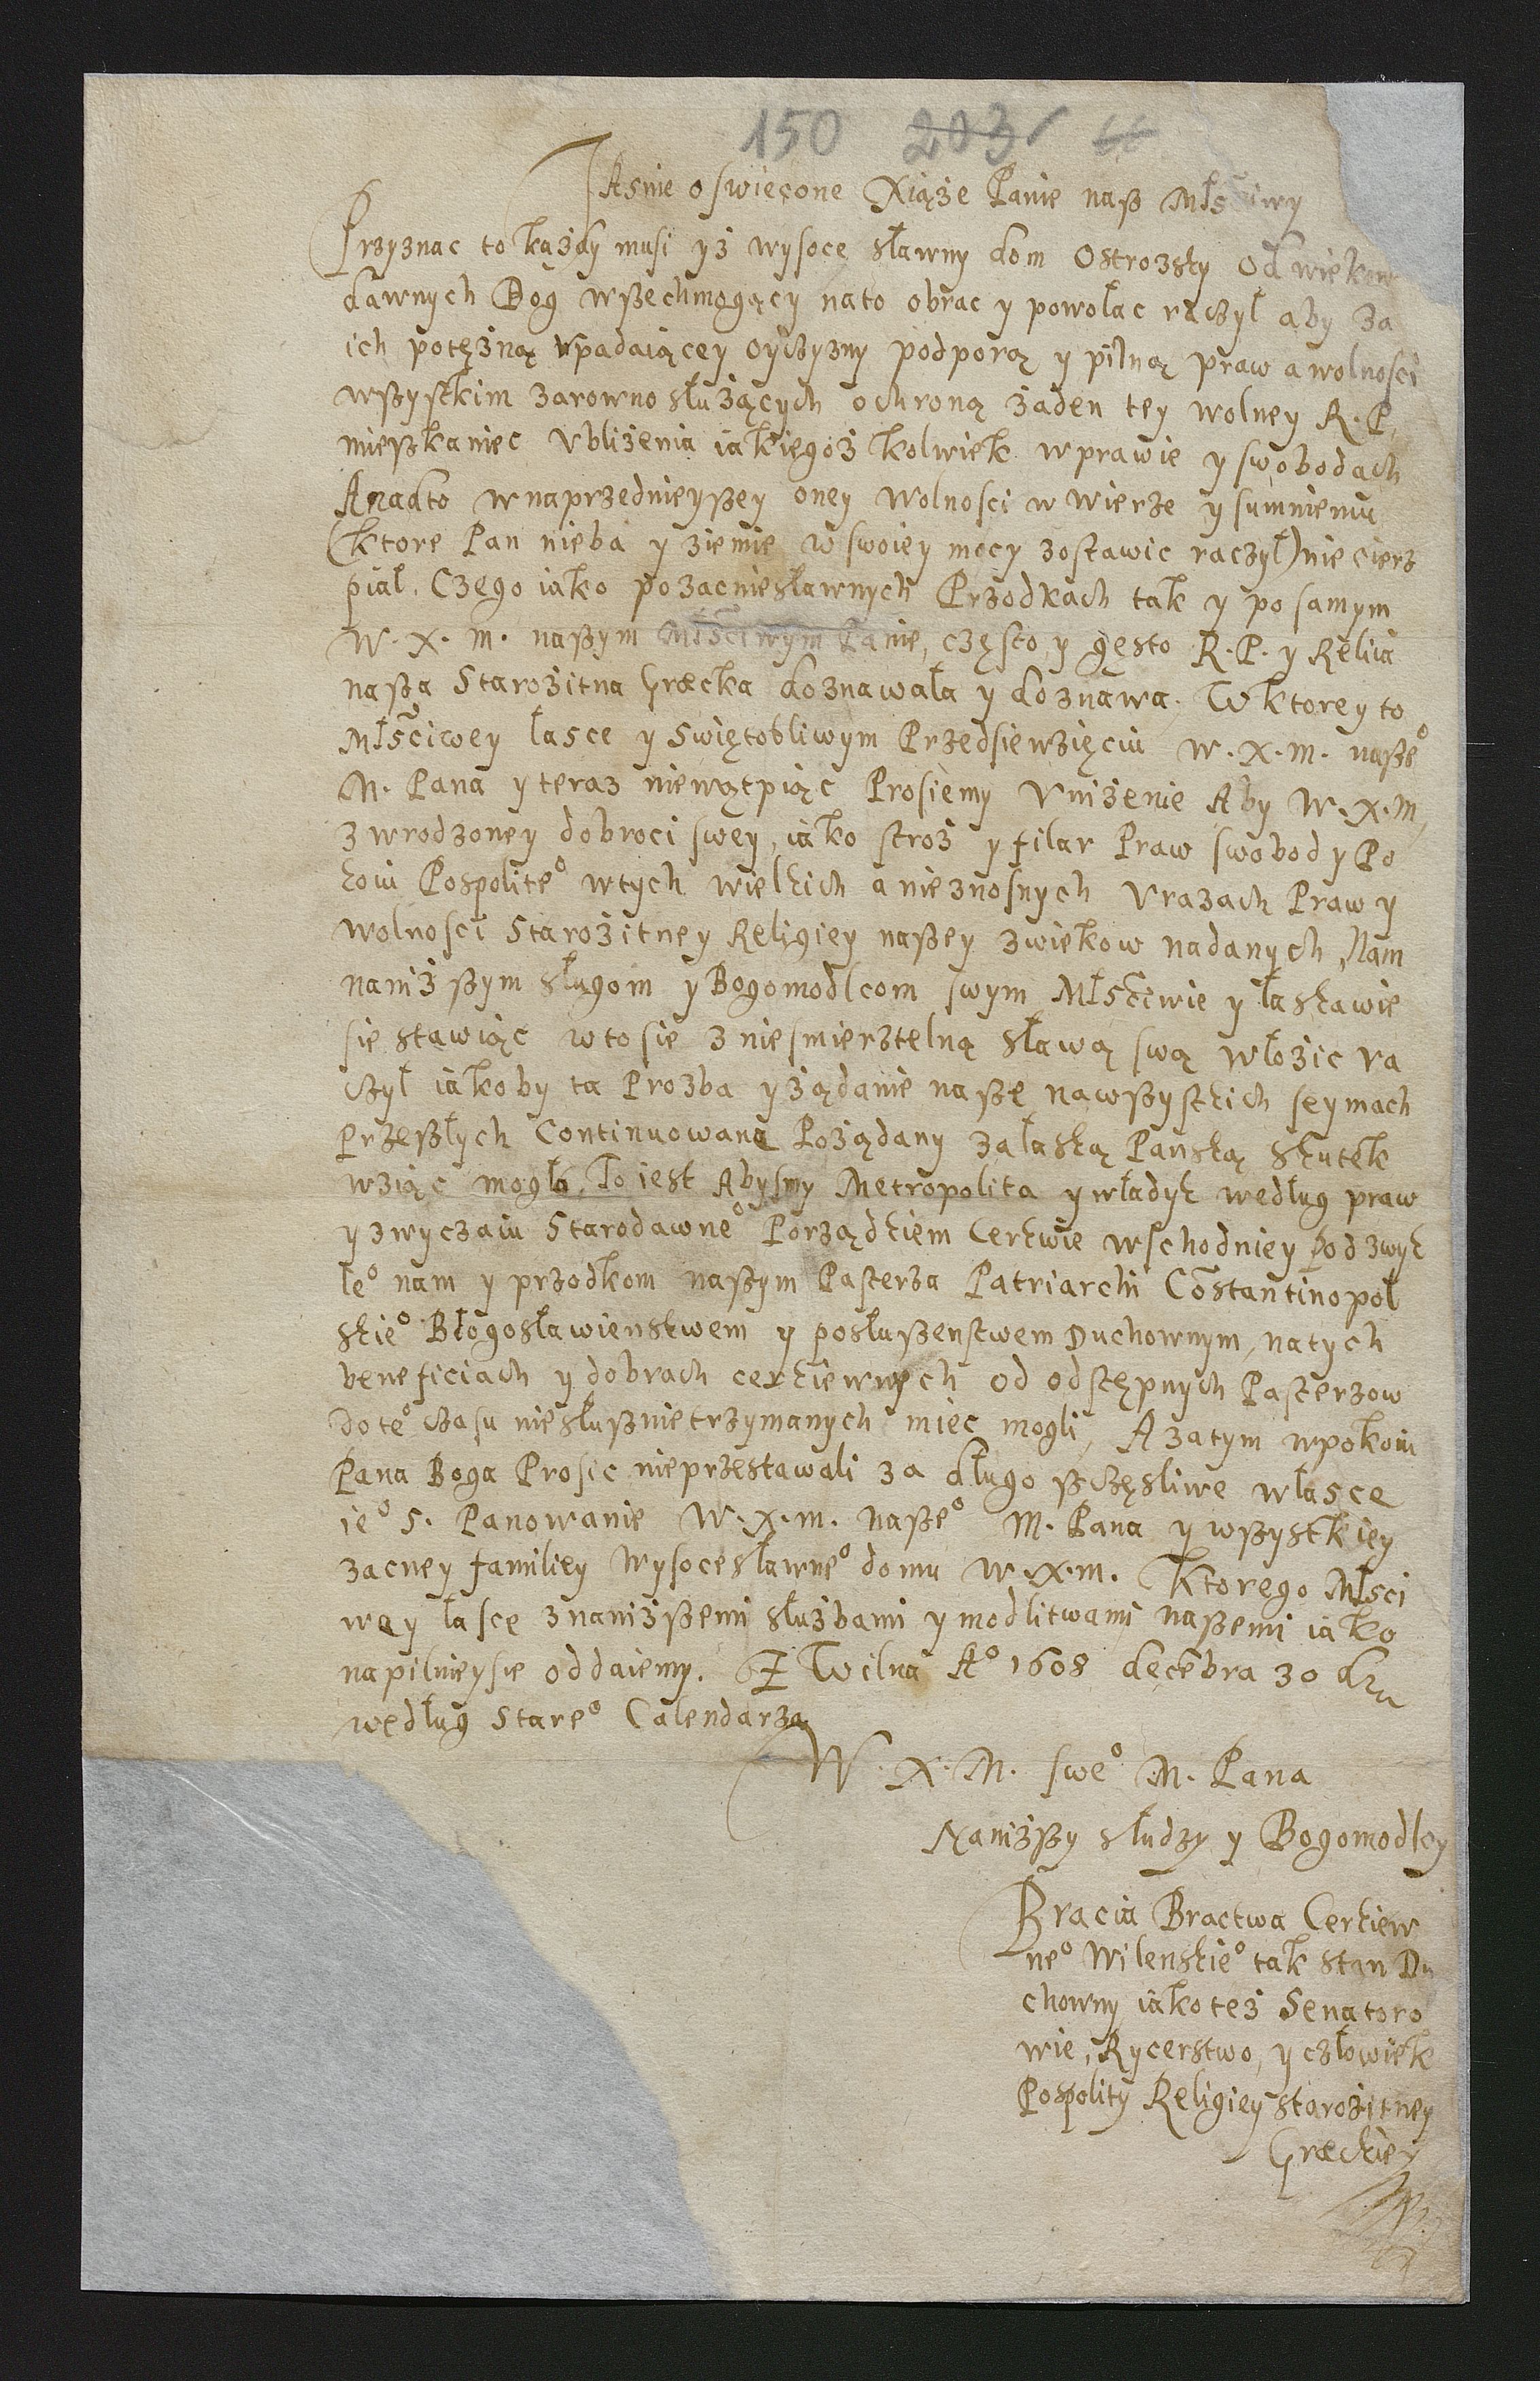 150 203 66
JAsnie oswiecone Xiąże Panie nasz Młsciwy
Przyznac to każdy musi yż wysoce sławny dom Ostrozsky Od wiekow
dawnych Bog wszechmogący nato obrac y powołac raczył aby za
ich potężną vpadaiącey oyczyzny podporą y pilną praw a wolnosci
wszystkim zarowno służących ochroną żaden tey wolney R. P.
mieszkaniec Vbliżenia iakiegoż kolwiek w prawie y swobodach
Anadto w naprzednieyszey oney wolnosci w wierze y sumnieniu
(ktore Pan nieba y ziemie w swoiey mocy zostawic raczył) niecierz
piał. Czego iako po zacniesławnych Przodkach tak y po samym
W. X. m. naszym Młsciwym Panie, często y gęsto R. P. y Relia
nasza Starożitna Græcka doznawała y doznawa. W ktorey to
Młsciwey łasce y Swiętobliwym Przedsiewzięciu W. X. m. nasze°
M. Pana y teraz niewątpiąc Prosiemy Vniżenie Aby W. X. m.
z wrodzoney dobroci swey, iako stroż y filar Praw swobod y Po
koiu Pospolite° w tych wielkich a nieznosnych Vrazach Praw y
wolnosci Starożitney Religiey naszey z wiekow nadanych, Nam
naniższym sługom y Bogomodlcom swym Młsciwie y łaskawie
sie stawiąc w to sie z niesmierztelną sławą swą włożic ra
czył iakoby ta Prozba y żądanie nasze na wszystkich seymach
Przeszłych Continuowana Pożądany za łaską Panską Skutek
wziąc mogła. To iest Abysmy Metropolita y władyk według praw
y zwyczaiu Starodawne° Porządkiem Cerkwie wschodniey pod zwyk
łe° nam y przodkom naszym Pasterza Patriarchi Constantinopol
skie° Błogosławienstwem y posłuszenstwem Duchownym, na tych
beneficiach y dobrach cerkiewnych od odstępnych Pasterzow
do te° czasu niesłusznie trzymanych miec mogli, A zatym w pokoiu
Pana Boga Prosic nieprzestawali za długo szczęsliwe w łasce
ie° S. Panowanie W. X. m. nasze° M. Pana y wszystkiey
zacney familiey wysocesławne° domu W. X. m. Ktorego Młsci
wey łasce z naniższemi służbami y modlitwami naszemi iako
napilniey sie oddaiemy. Z Wilna A° 1608 decebra 30 dn
według Stare° Calendarza
W. X. M. swe° M. Pana
Naniższy słudzy y Bogomodlcy
Bracia Bractwa Cerkiew
ne° Wilenskie° tak stan Du
chowny iako też Senatoro
wie, Rycerstwo, y człowiek
Pospolity Religiey starożitney
Græckiey